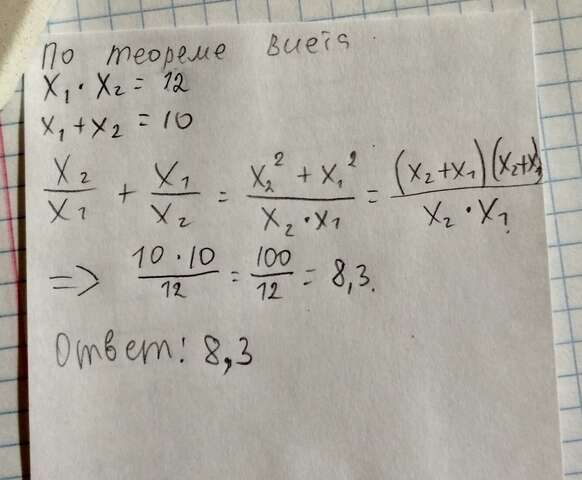 По теореме виета
x₁ · x₂ = 12
x₁ + x₂ = 10
x₂/x₁ + x₁/x₂ = (x₂² + x₁²)/(x₂ · x₁) = (x₂+x₁)(x₂+x₁)/(x₂ · x₁)
=> (10 · 10)/12 = 100/12 = 8,3.
Ответ: 8,3